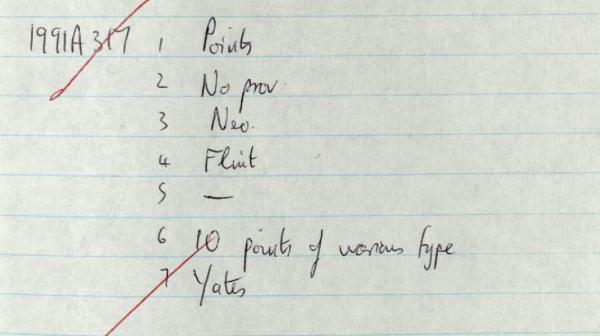 1991A 317 1 Points
2 No prov.
3 Neo.
4 Flint
5 —
6 10 points of various type
7 Yates